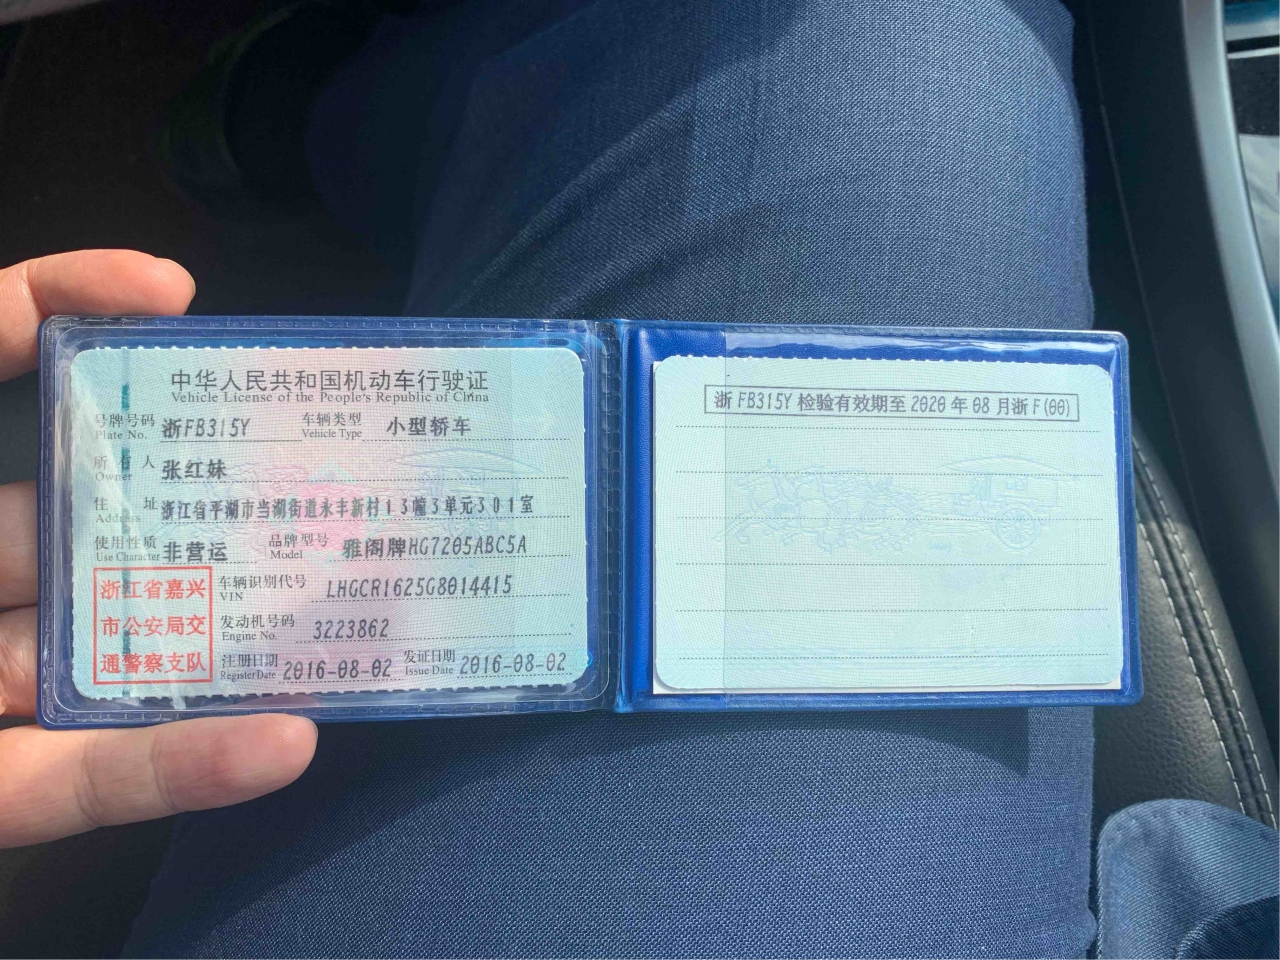 中华人民共和国机动车行驶证
Vehicle License of the People's Republic of China
号牌号码 浙FB315Y 车辆类型 小型轿车
Plate No. Vehicle Type
所有人 张红妹
Owner
住址 浙江省平湖市当湖街道永丰新村13幢3单元301室
Address
使用性质 非营运 品牌型号 雅阁牌HG7205ABC5A
Use Character Model
浙江省嘉兴
市公安局交
通警察支队
车辆识别代号 LHGCR1625G8014415
VIN
发动机号码 3223862
Engine No.
注册日期 2016-08-02 发证日期 2016-08-02
Register Date Issue Date
浙FB315Y 检验有效期至 2020 年 08 月浙F(00)